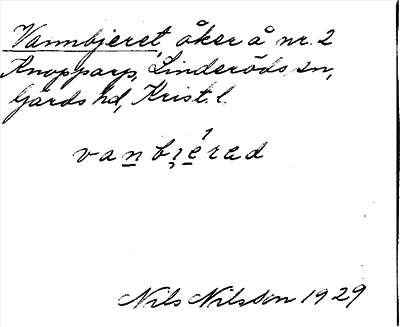 Vannbjeret, åker å nr. 2
Knopparp, Linderöds sn,
Gärds hd, Krist. l.
vanbi̯érad
Nils Nilsson 1929